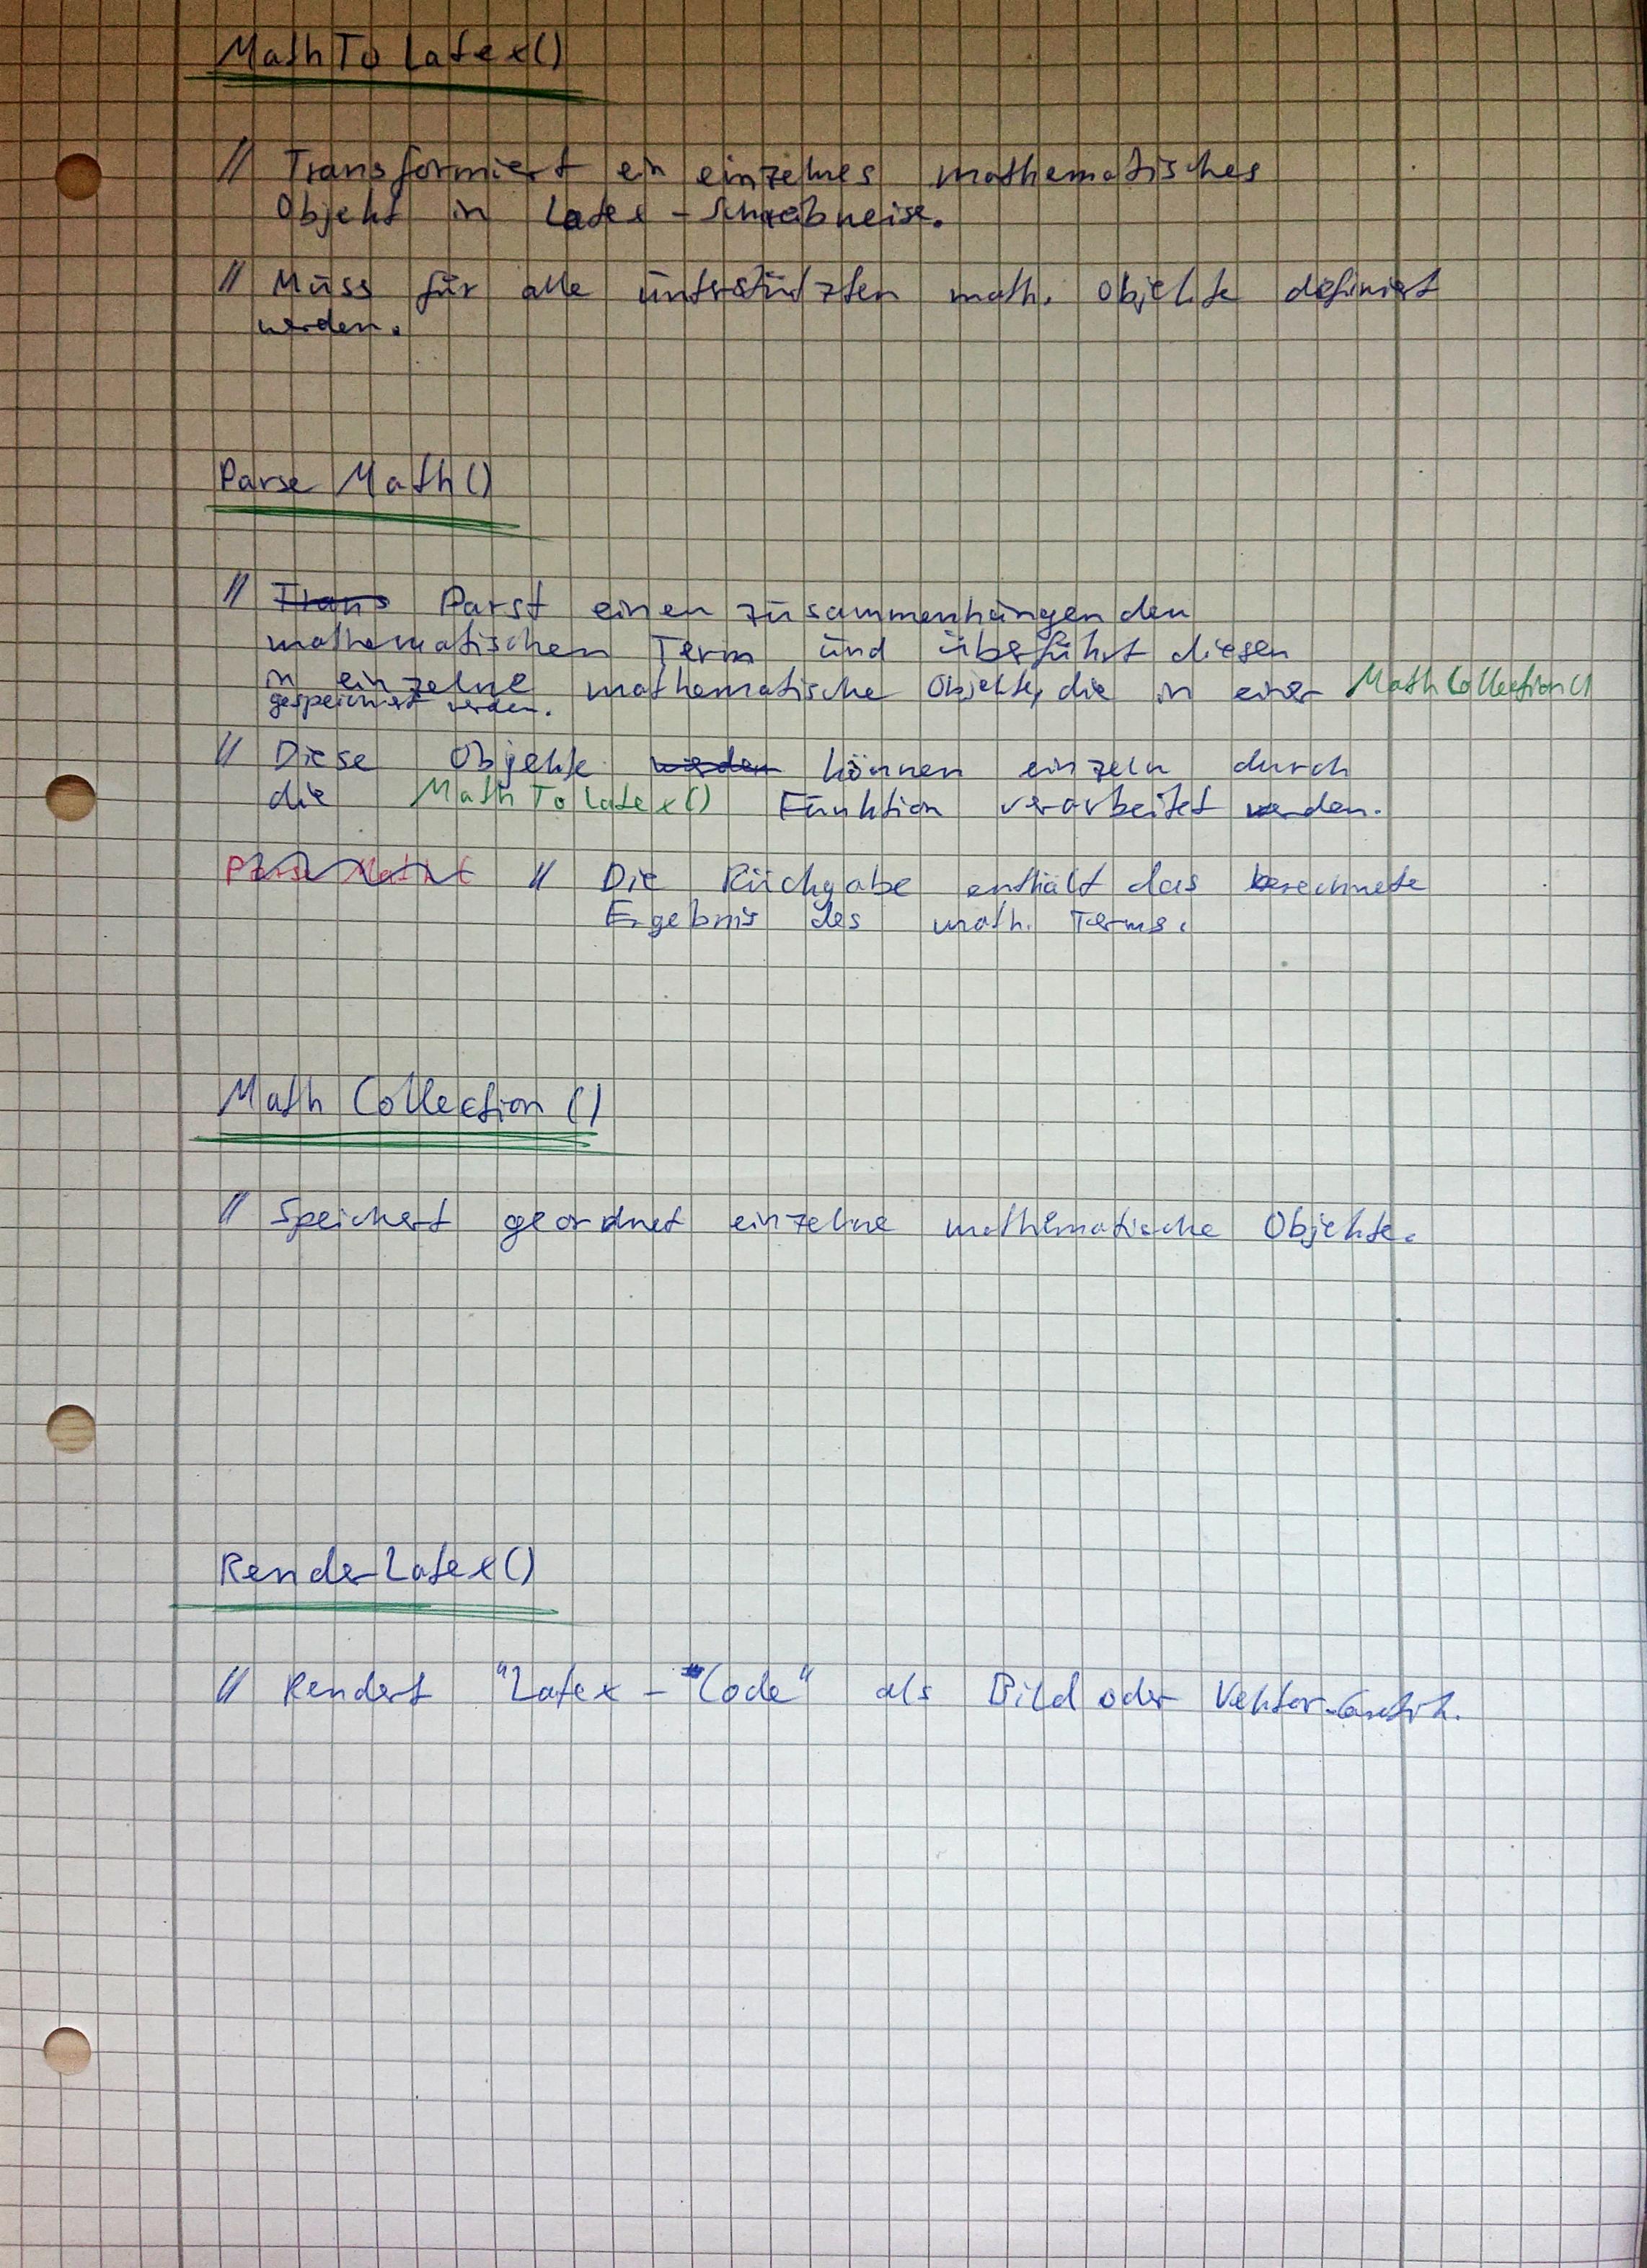 MathToLatex()
// Transformiert ein einzelnes mathematisches
Objekt in Latex-Schreibweise.
// Muss für alle unterstützten math. Objekte definiert
werden.
ParseMath()
// Trans Parst einen zusammenhängenden
mathematischen Term und überführt diesen
in einzelne mathematische Objekte, die in einer MathCollection()
gespeichert werden.
// Diese Objekte werden können einzeln durch
die MathToLatex() Funktion verarbeitet werden.
ParseMath( // Die Rückgabe enthält das berechnete
Ergebnis des math. Terms.
MathCollection()
// Speichert geordnet einzelne mathematische Objekte.
RenderLatex()
// Rendert "Latex-Code" als Bild oder Vektor-Grafik.